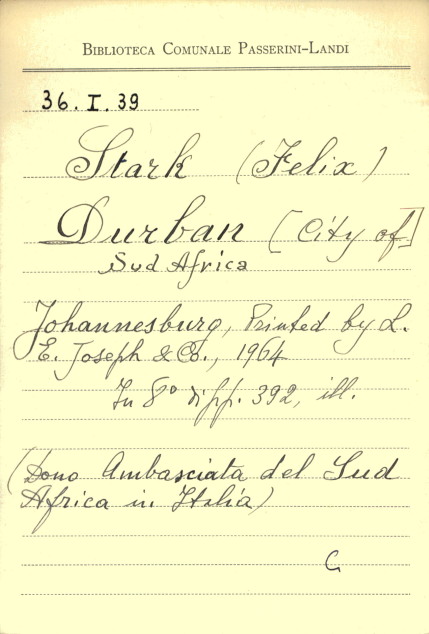 BIBLIOTECA COMUNALE PASSERINI-LANDI
36. I. 39
Stark (Felix)
Durban [City of]
Sud Africa
Johannesburg, Printed by L.
E. Joseph & Co., 1964
In 8° di pp. 392, ill.
(Dono Ambasciata del Sud
Africa in Italia)
G